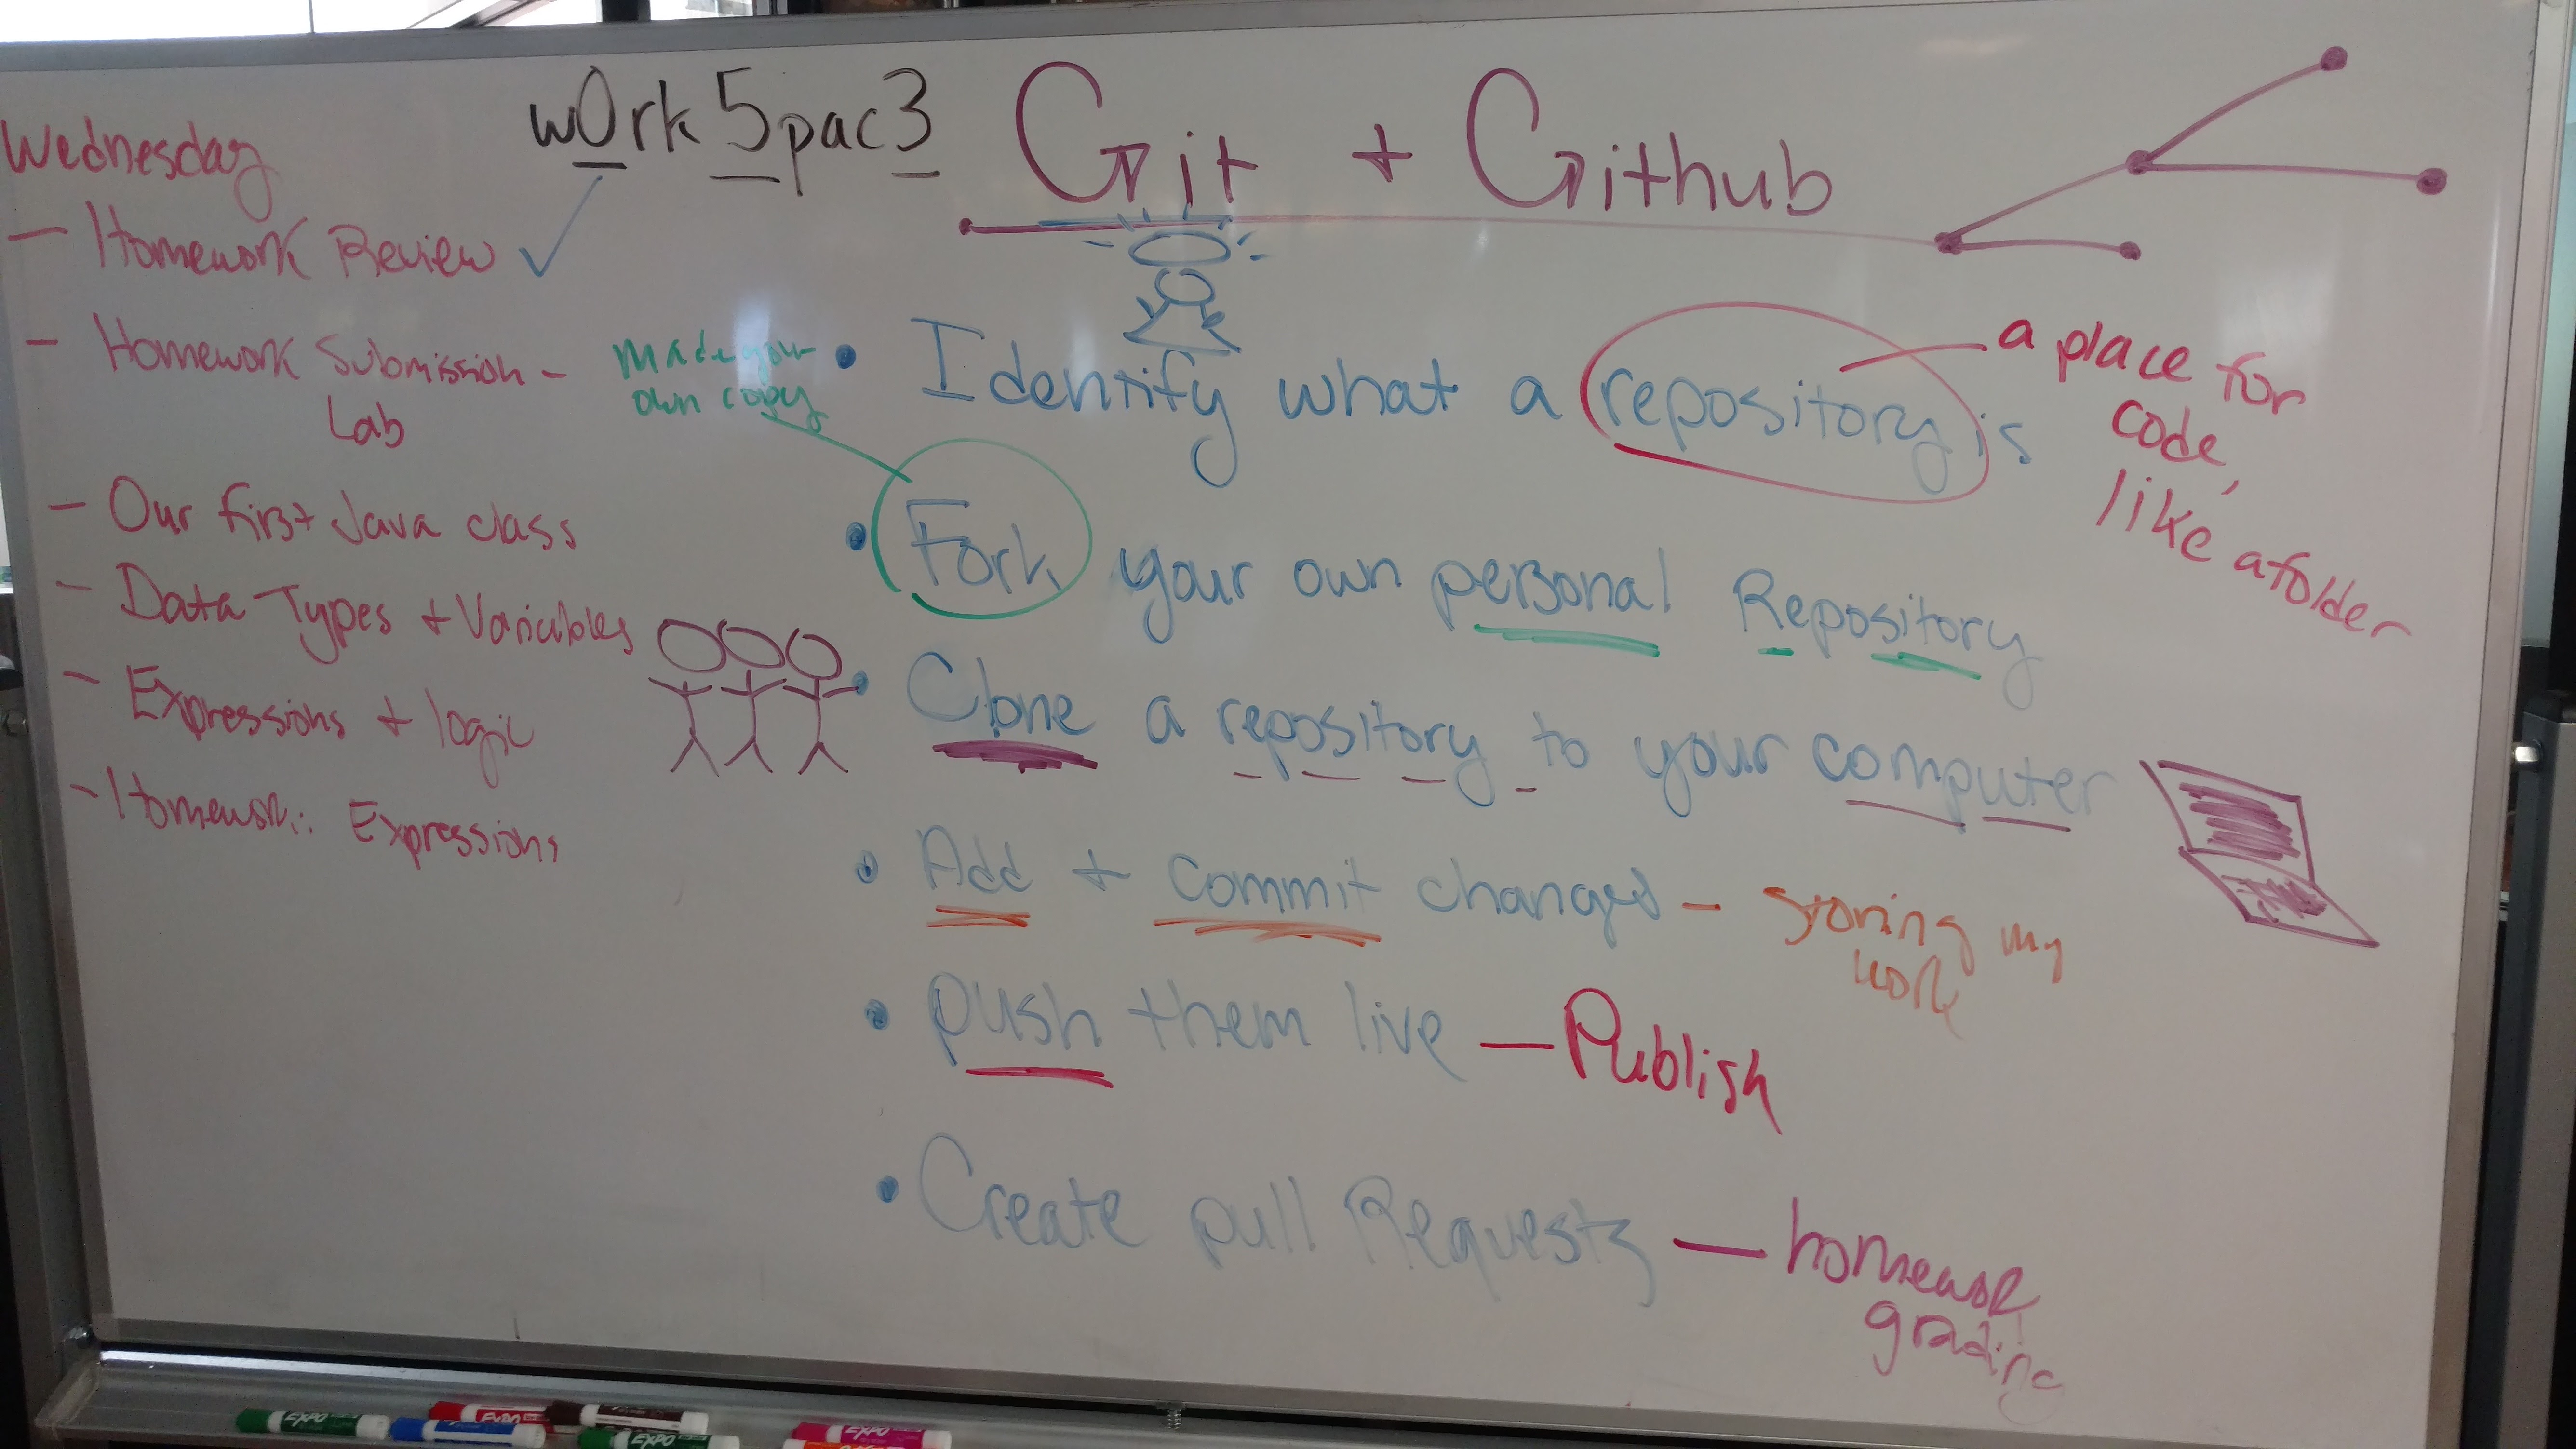 w0rk5pac3
Git + Github
Wednesday
- Homework Review ✓
- Homework Submission -
Lab
- Our first Java class
- Data Types + Variables
- Expressions + logic
- Homework: Expressions
made your
own copy
• Identify what a repository is
a place for
code,
like a folder
• Fork your own personal Repository
• Clone a repository to your computer
• Add + commit changes - storing my
work
• push them live - Publish
• Create pull Requests - homework
grading
EXPO
EXPO
EXPO
EXPO